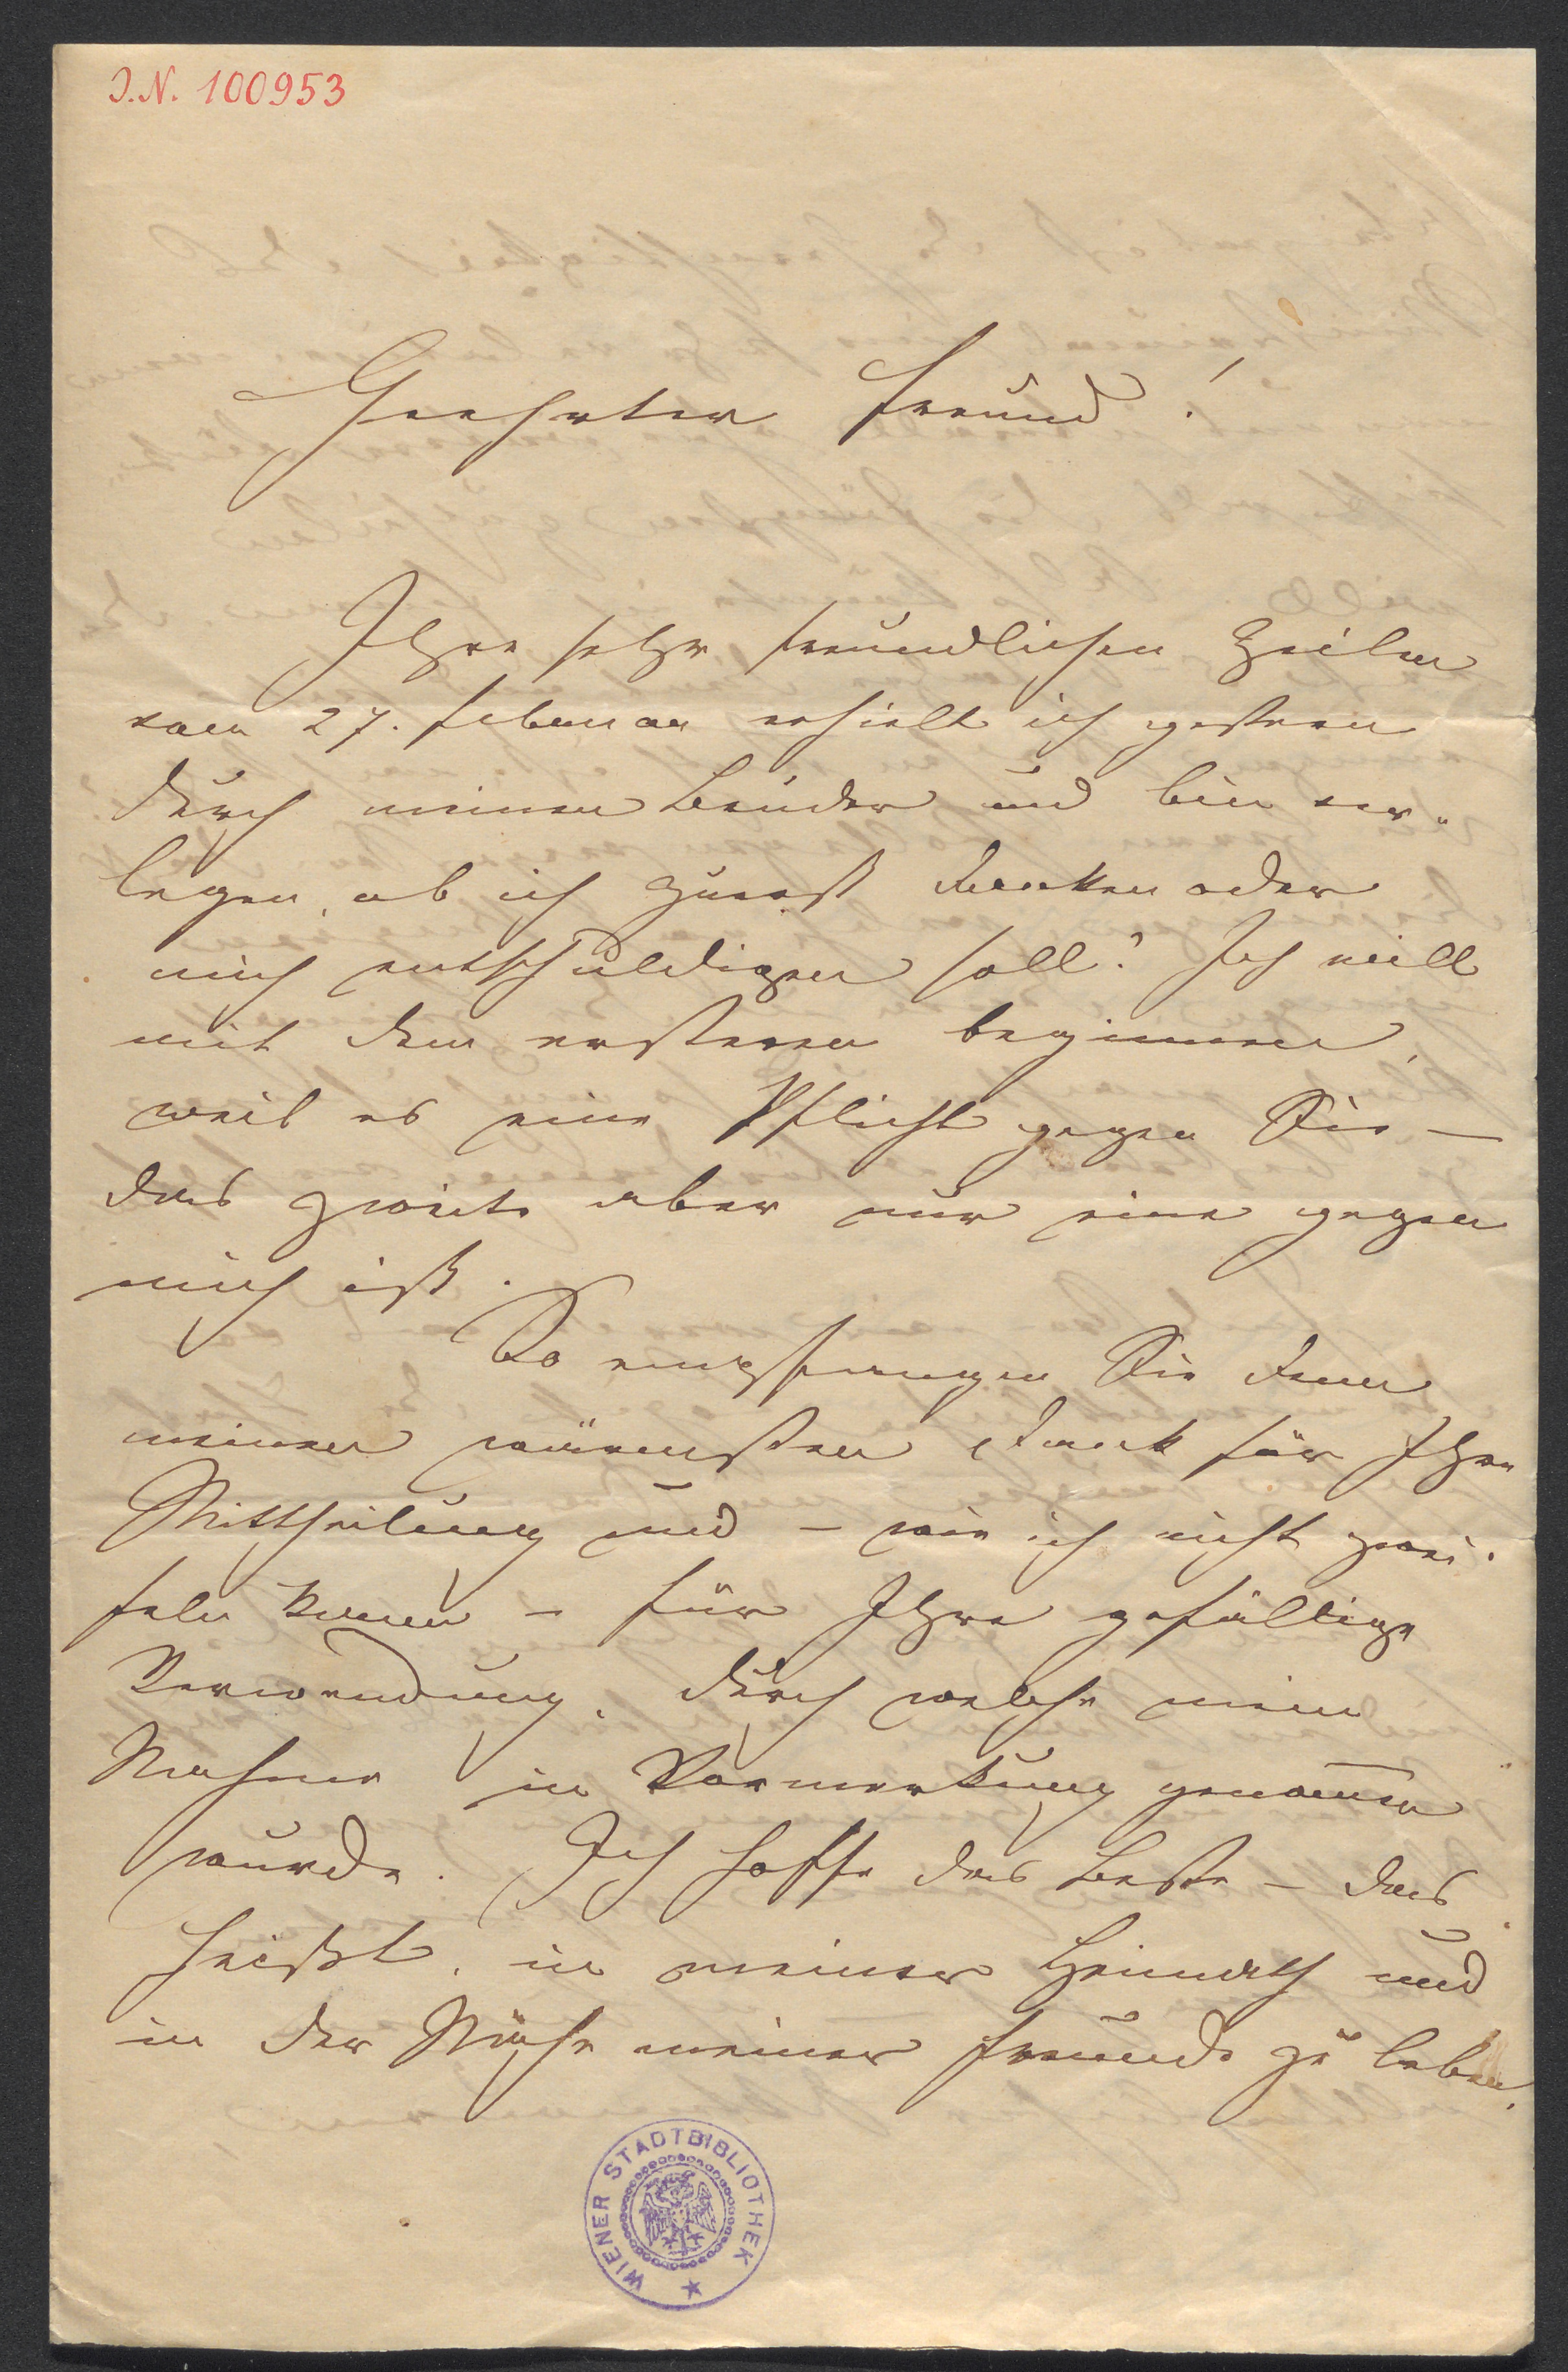 I.N. 100953
Geehrter Freund!
Ihre sehr freundlichen Zeilen
vom 27. Februar erhielt ich gestern
durch meinen Bruder und bin ver-
legen, ob ich zuerst danken oder
mich entschuldigen soll? Ich will
mit dem ersteren beginnen,
weil es eine Pflicht gegen Sie —
das zweite aber nur eine gegen
mich ist.
So empfangen Sie denn
meinen wärmsten Dank für Ihre
Mittheilung und — wie ich nicht zwei-
feln kann — für Ihre gefällige
Verwendung, durch welche mein
Nahme in Vormerkung genom̅en
wurde. Ich hoffe das Beste — das
heißt, in meiner Heimath und
in der Nähe meiner Freunde zu leben,
WIENER STADTBIBLIOTHEK